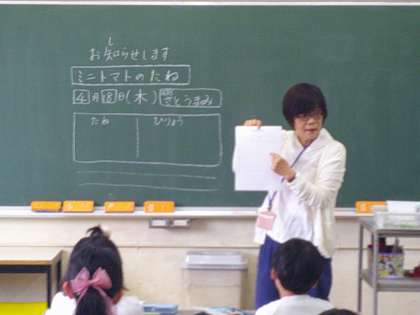 し
お知らせします
ミニトマトのたね
4月18日(木) さとうまみ
たね ひりょう